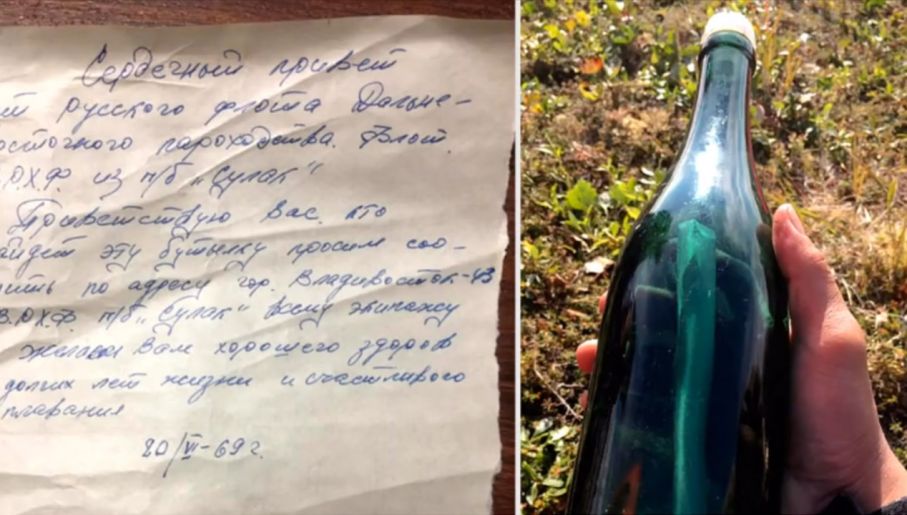 Сердечный привет
от русского флота Дальне-
осточного пароходства. Флот.
.О.Х.Ф. из п/б „Сулак"
Приветствую Вас. кто
айдет эту бутылку просим соо-
ить по адресу гор. Владивосток-43
В.О.Х.Ф. п/б „Сулак" всему экипажу
желаем Вам хорошего здоров
долгих лет жизни и счастливого
плавания
20/VI-69 г.